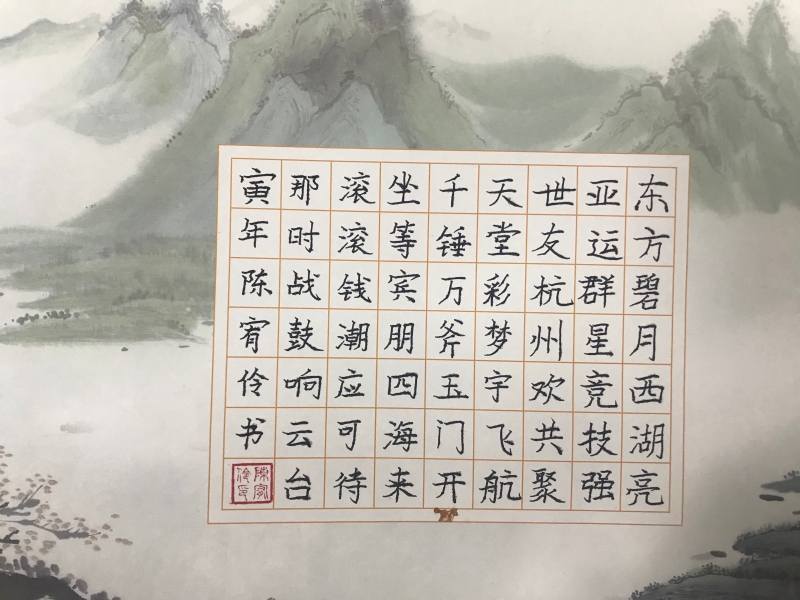 东方碧月西湖亮
亚运群星竞技强
世友杭州欢共聚
天堂彩梦宇飞航
千锤万斧玉门开
坐等宾朋四海来
滚滚钱潮应可待
那时战鼓响云台
寅年陈宥伶书